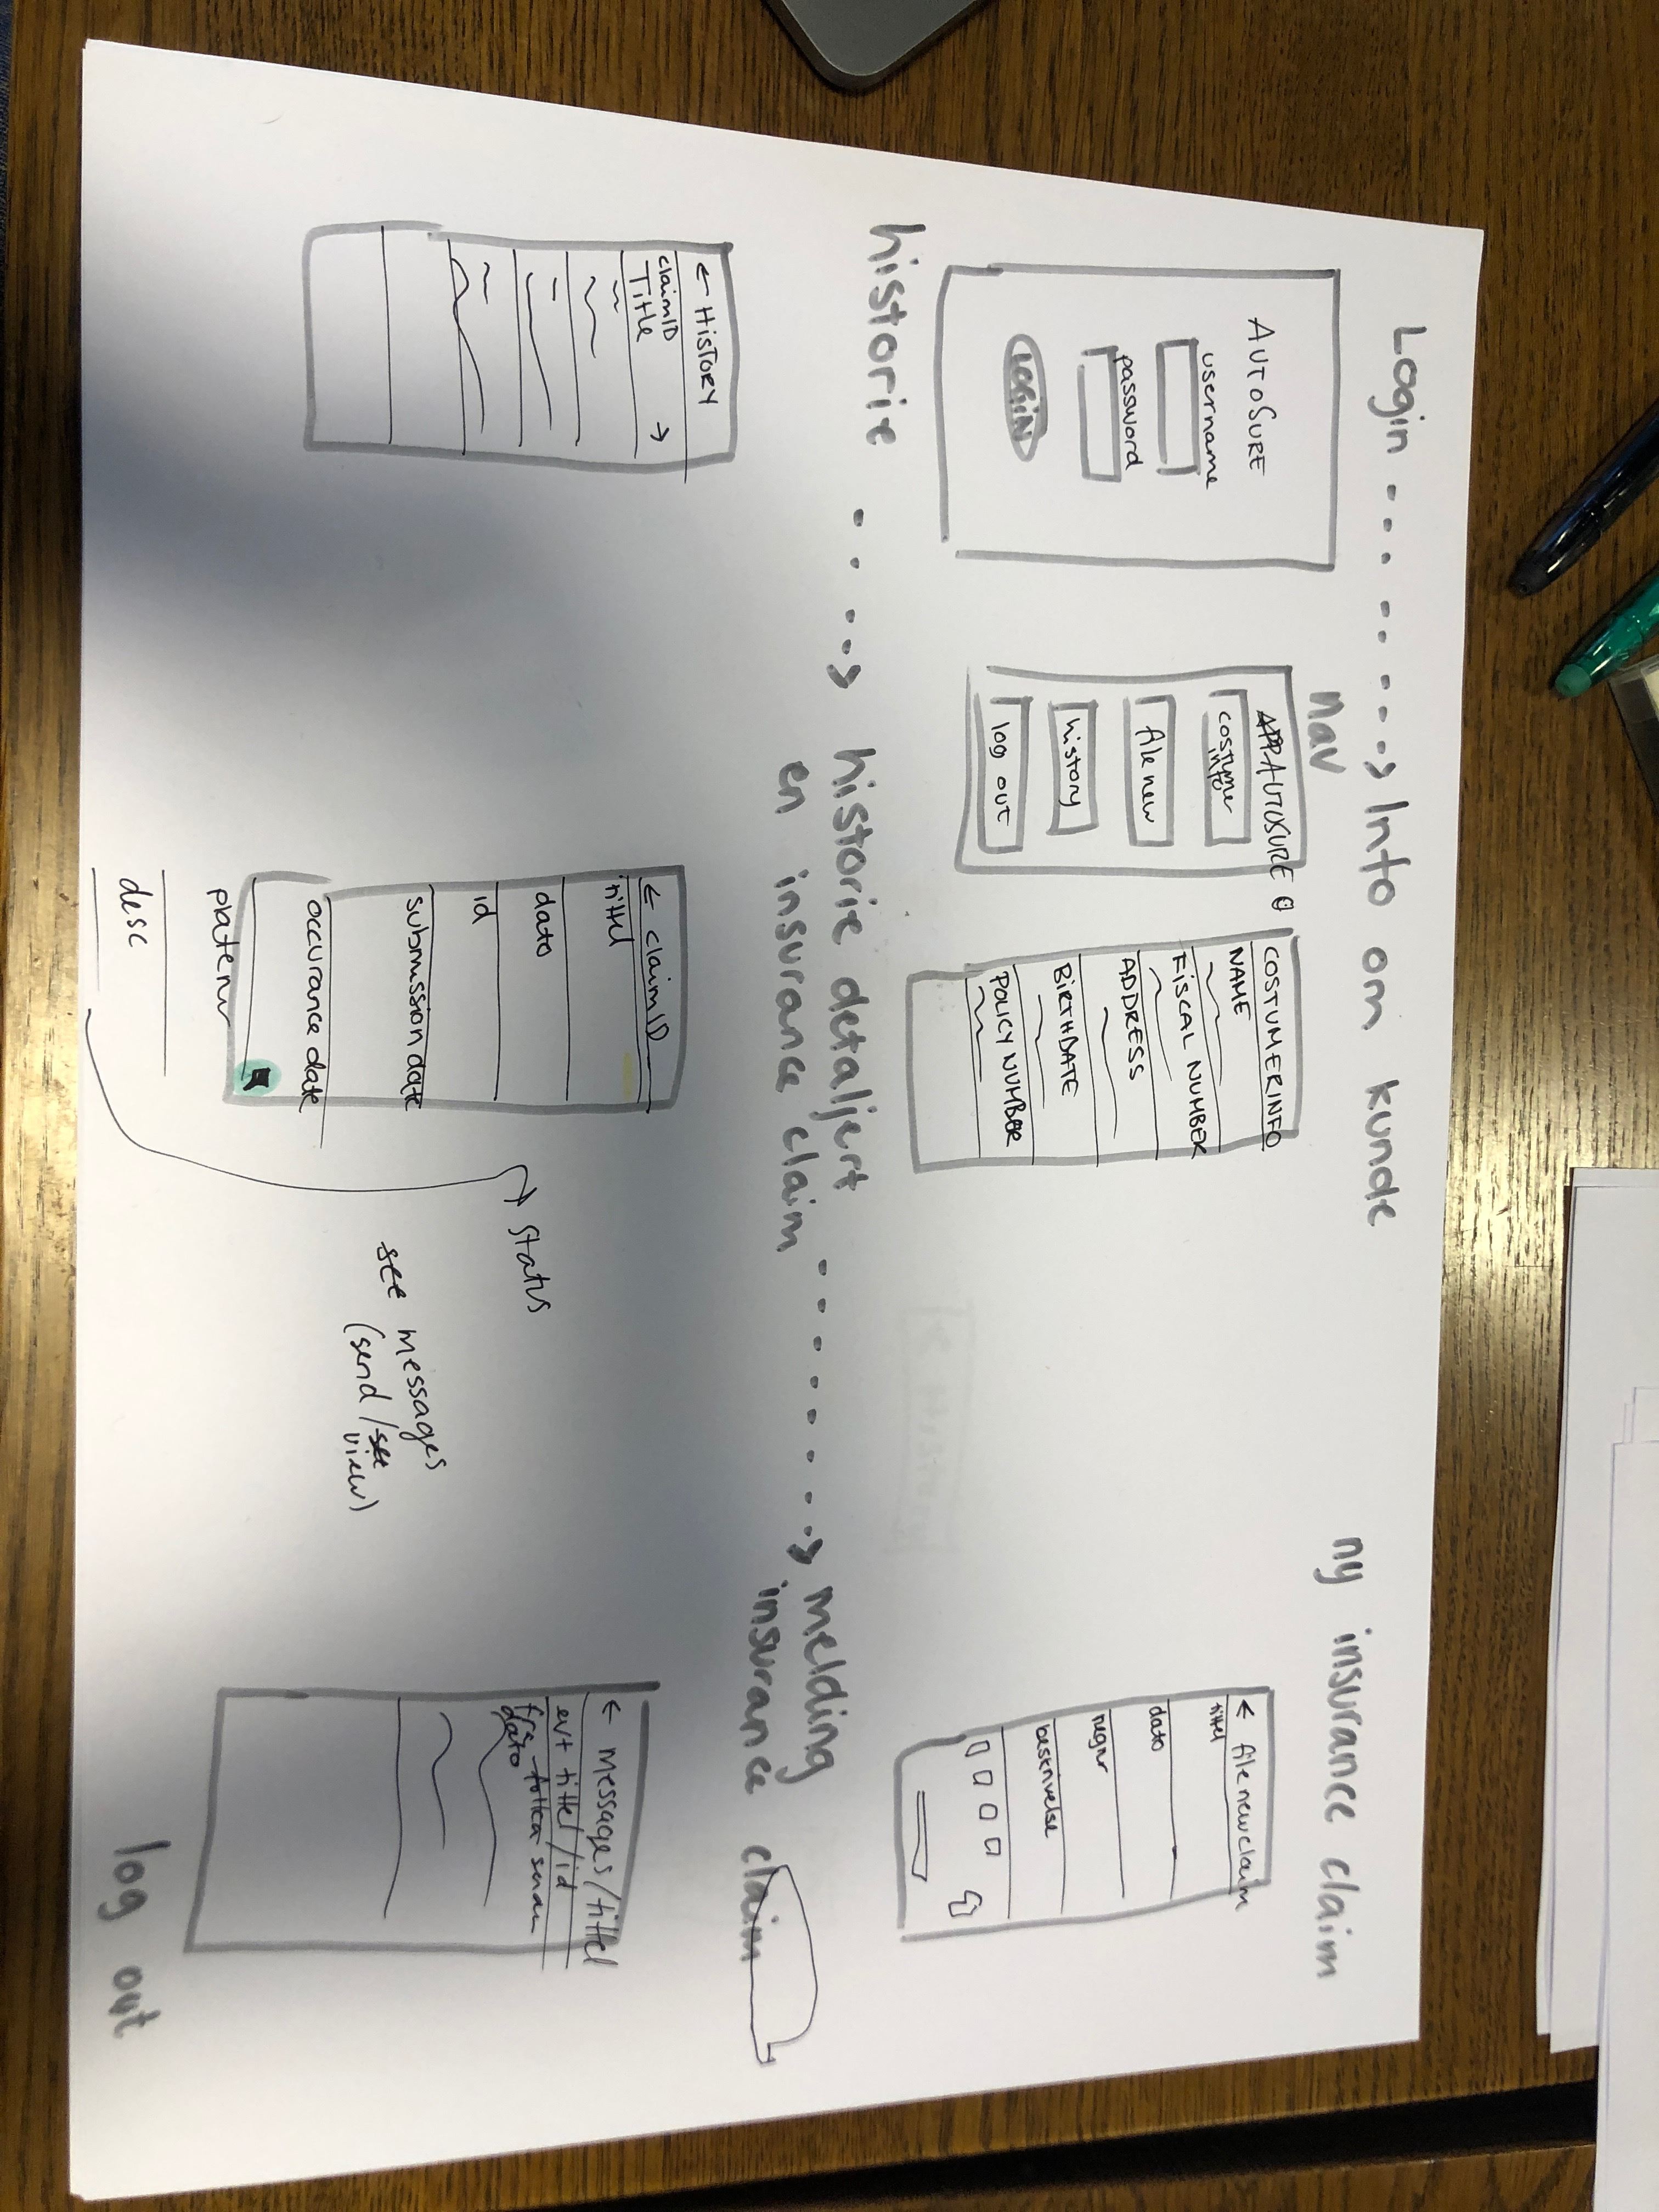 Login
Info om kunde
ny insurance claim
AUTOSURE
username
password
LOGIN
nav
AUTOSURE
costumer
info
file new
history
log out
COSTUMERINFO
NAME
FISCAL NUMBER
ADDRESS
BIRTHDATE
POLICY NUMBER
← file new claim
tittel
dato
regnr
beskrivelse
historie
historie detaljert
en insurance claim
melding
insurance claim
← HISTORY
claimID →
Title
← claimID
tittel
dato
id
submission date
occurance date
platenr
desc
status
see messages
(send / see
view)
← messages/tittel
evt tittel/id
fra
dato
log out